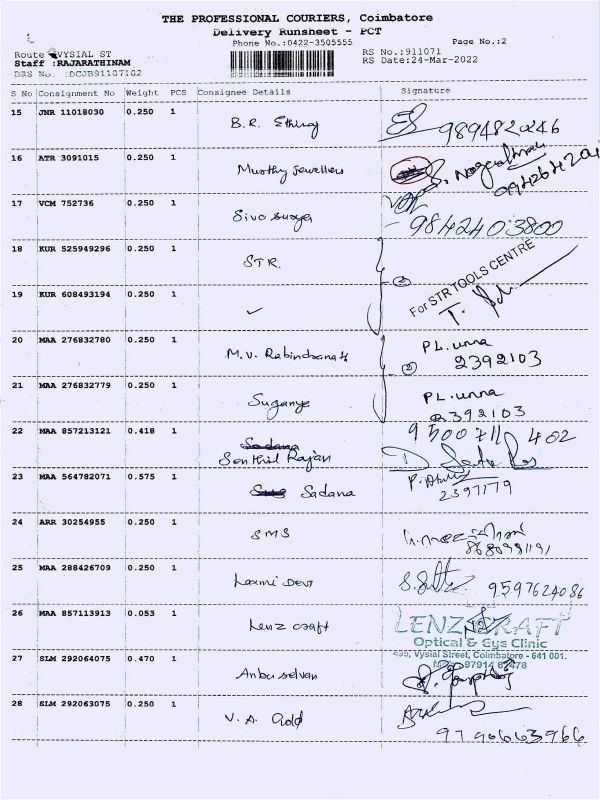 THE PROFESSIONAL COURIERS, Coimbatore
Delivery Runsheet - PCT
Phone No.:0422-3505555
Page No.:2
Route : VYSIAL ST
RS No.:911071
Staff :RAJARATHINAM
RS Date:24-Mar-2022
DRS No. :DCJB91107102
S No Consignment No Weight PCS Consignee Details Signature
15 JNR 11018030 0.250 1 B.R. Ethiraj 9894820246
16 ATR 3091015 0.250 1 Murthy Jewellers
17 VCM 752736 0.250 1 Siva Surya 9842403800
18 KUR 525949296 0.250 1 STR.
For STR TOOLS CENTRE
19 KUR 608493194 0.250 1 ✓
20 MAA 276832780 0.250 1 M.V. Rabindranath PL. unna
2392103
21 MAA 276832779 0.250 1 Suganya PL. unna
2392103
22 MAA 857213121 0.418 1 Senthil Rajan 9500711402
23 MAA 564782071 0.575 1 Sadana
2397179
24 ARR 30254955 0.250 1 SMS
8680991191
25 MAA 288426709 0.250 1 Laxmi Devi 9597624086
26 MAA 857113913 0.053 1 Lenz craft
LENZ CRAFT
Optical & Eye Clinic
Vysial Street, Coimbatore - 641 001.
27 SLM 292064075 0.470 1 Anbu selvan
28 SLM 292063075 0.250 1 V. A. Gold
9790663966